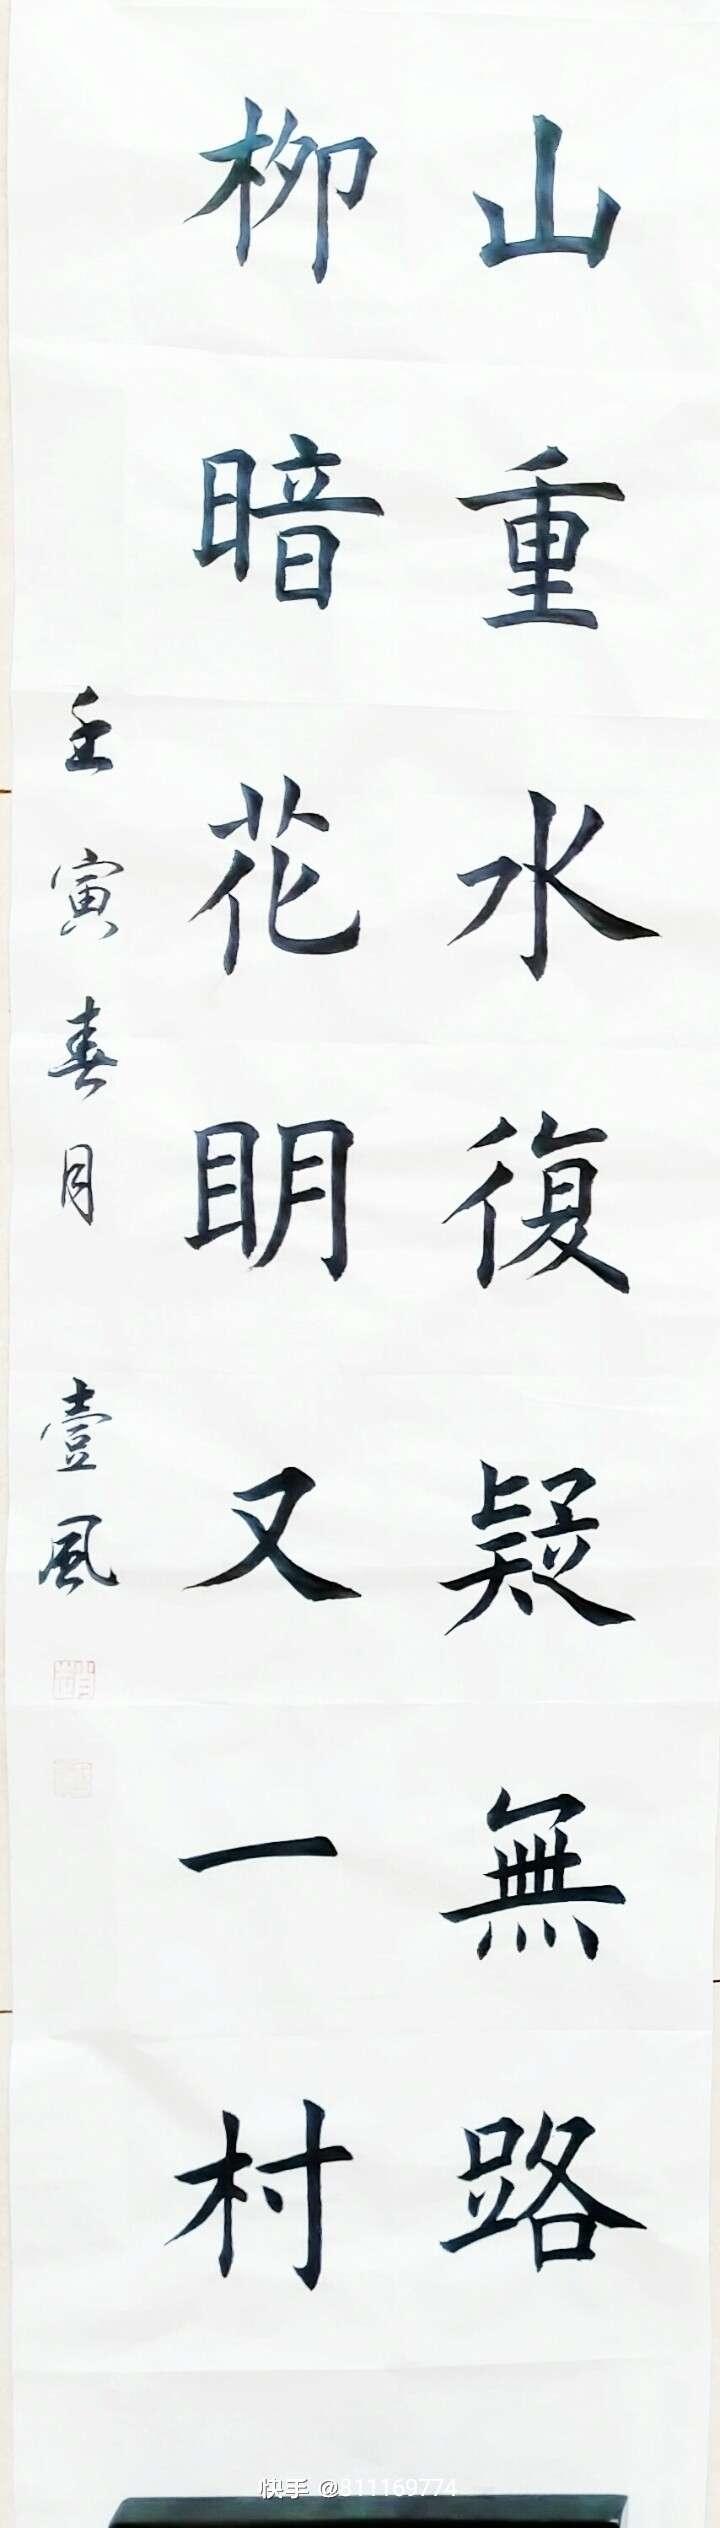 山重水復疑無路
柳暗花明又一村
壬寅春月 壹風
快手 @811169774